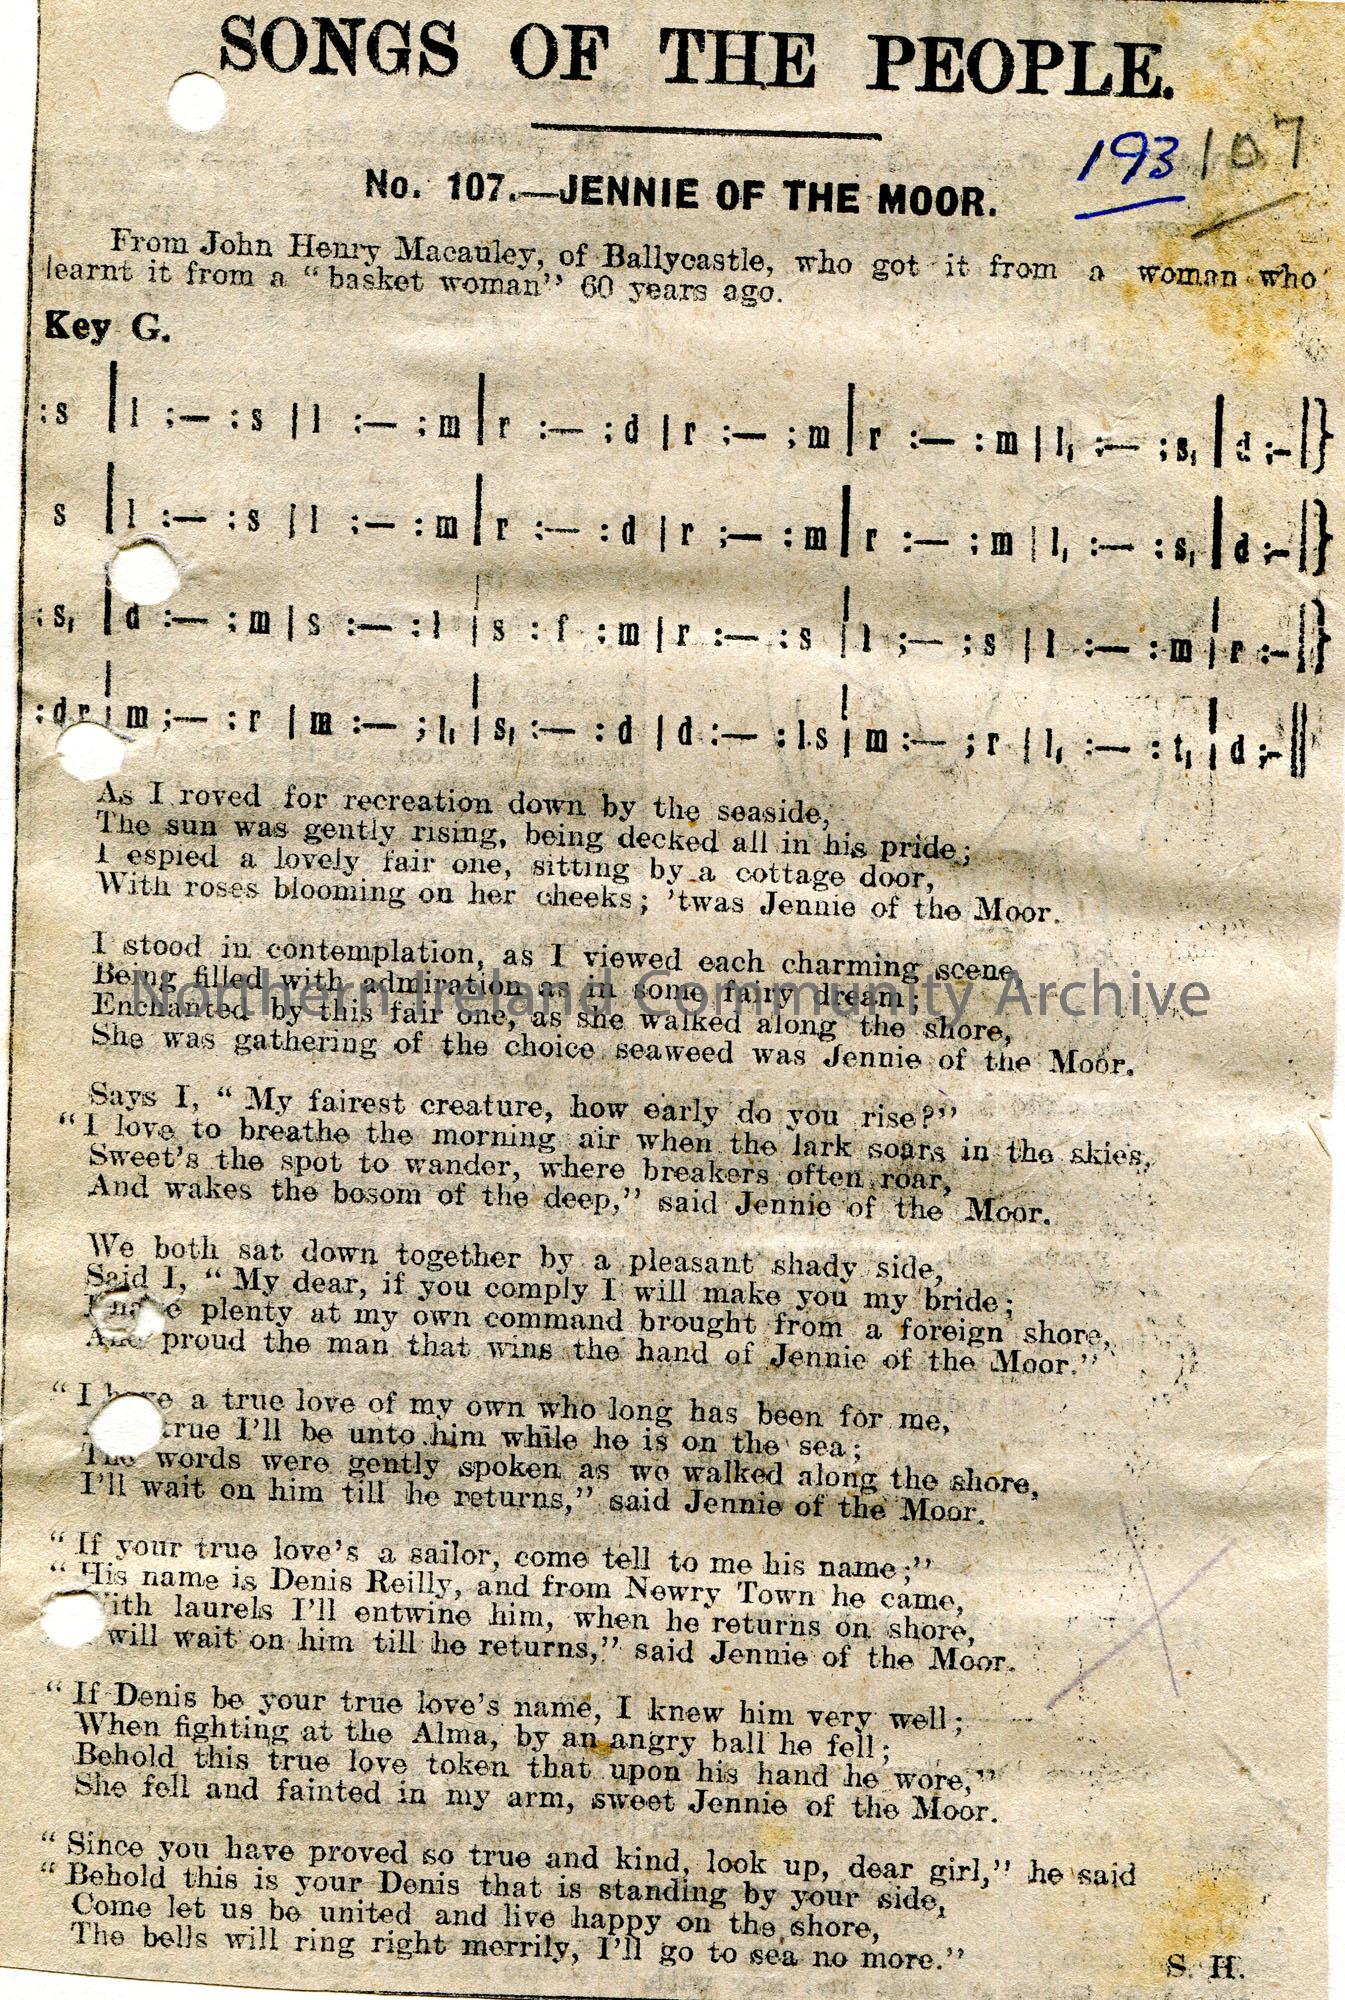 SONGS OF THE PEOPLE.
193 107
No. 107.—JENNIE OF THE MOOR.
From John Henry Macauley, of Ballycastle, who got it from a woman who
learnt it from a "basket woman" 60 years ago.
Key G.
:s | l :— :s | l :— :m | r :— :d | r :— :m | r :— :m | l, :— :s, | d :– ||}
s | l :— :s | l :— :m | r :— :d | r :— :m | r :— :m | l, :— :s, | d :– ||}
:s, | d :— :m | s :— :l | s :f :m | r :— :s | l :— :s | l :— :m | r :– ||}
:d r | m :— :r | m :— :l, | s, :— :d | d :— :l.s | m :— :r | l, :— :t, | d :– ||
As I roved for recreation down by the seaside,
The sun was gently rising, being decked all in his pride;
I espied a lovely fair one, sitting by a cottage door,
With roses blooming on her cheeks; 'twas Jennie of the Moor.
I stood in contemplation, as I viewed each charming scene
Being filled with admiration as in some fairy dream;
Northern Ireland Community Archive
Enchanted by this fair one, as she walked along the shore,
She was gathering of the choice seaweed was Jennie of the Moor.
Says I, "My fairest creature, how early do you rise?"
"I love to breathe the morning air when the lark soars in the skies,
Sweet's the spot to wander, where breakers often roar,
And wakes the bosom of the deep," said Jennie of the Moor.
We both sat down together by a pleasant shady side,
Said I, "My dear, if you comply I will make you my bride;
plenty at my own command brought from a foreign shore,
And proud the man that wins the hand of Jennie of the Moor."
"I have a true love of my own who long has been for me,
true I'll be unto him while he is on the sea;
The words were gently spoken as we walked along the shore,
I'll wait on him till he returns," said Jennie of the Moor.
"If your true love's a sailor, come tell to me his name;"
"His name is Denis Reilly, and from Newry Town he came,
With laurels I'll entwine him, when he returns on shore,
will wait on him till he returns," said Jennie of the Moor.
"If Denis be your true love's name, I knew him very well;
When fighting at the Alma, by an angry ball he fell;
Behold this true love token that upon his hand he wore,"
She fell and fainted in my arm, sweet Jennie of the Moor.
"Since you have proved so true and kind, look up, dear girl," he said
"Behold this is your Denis that is standing by your side,
Come let us be united and live happy on the shore,
The bells will ring right merrily, I'll go to sea no more."
S. H.